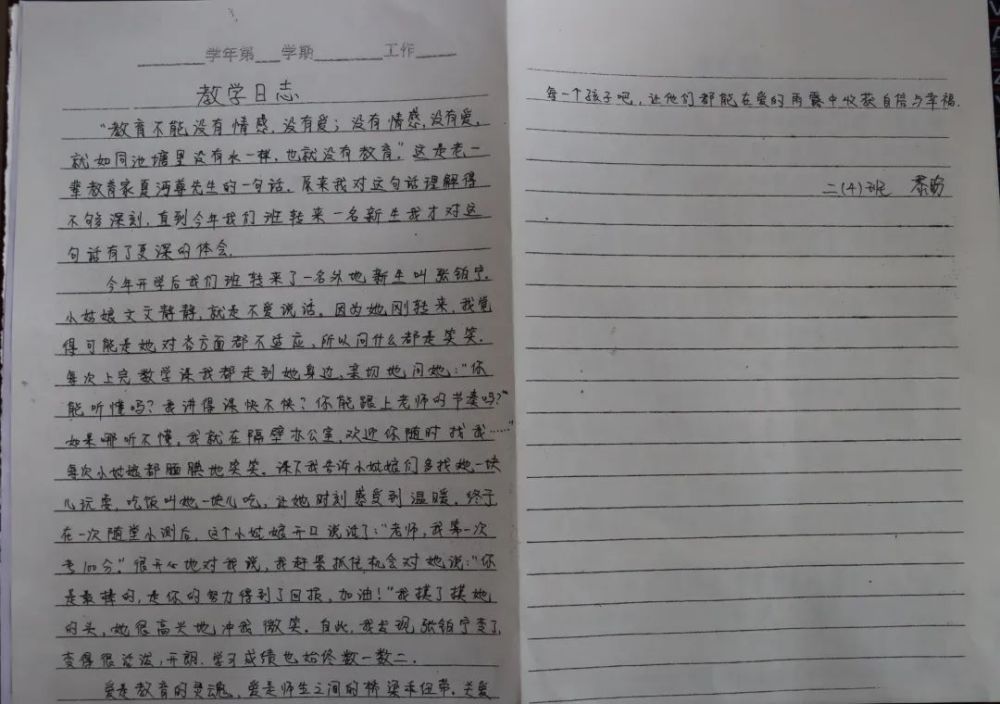 学年第 学期 工作
教学日志
“教育不能没有情感,没有爱;没有情感,没有爱,
就如同池塘里没有水一样,也就没有教育。”这是老一
辈教育家夏沔尊先生的一句话。原来我对这句话理解得
不够深刻,直到今年我们班转来一名新生我才对这
句话有了更深的体会.
今年开学后我们班转来了一名外地新生叫张钼宁.
小姑娘文文静静,就是不爱说话。因为她刚转来,我觉
得可能是她对各方面都不适应,所以问什么都是笑笑.
每次上完数学课我都走到她身边,亲切地问她:“你
能听懂吗?我讲得课快不快?你能跟上老师的节奏吗?”
如果哪听不懂,我就在隔壁办公室,欢迎你随时找我……”
每次小姑娘都腼腆地笑笑。课下我告诉小姑娘们多找她一块
儿玩耍,吃饭叫她一块儿吃,让她时刻感受到温暖。终于
在一次随堂小测后,这个小姑娘开口说话了:“老师,我第一次
考100分.”很开心地对我说,我赶紧抓住机会对她说:“你
是最棒的,是你的努力得到了回报,加油!”我摸了摸她
的头,她很高兴地冲我微笑。自此,我发现张钼宁变了,
变得很活泼,开朗.学习成绩也始终数一数二.
爱是教育的灵魂,爱是师生之间的桥梁和纽带.关爱
每一个孩子吧,让他们都能在爱的雨露中收获自信与幸福.
二(4)班